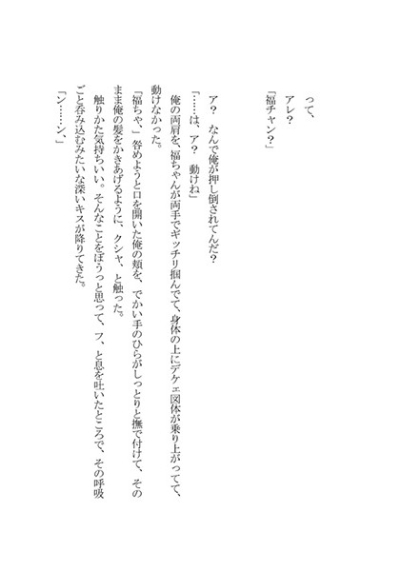 って、
アレ？
「福チャン？」
ア？　なんで俺が押し倒されてんだ？
「……は、ア？　動けね」
俺の両肩を、福ちゃんが両手でギッチリ掴んでて、身体の上にデケェ図体が乗り上がってて、
動けなかった。
「福ちゃ、」咎めようと口を開いた俺の頬を、でかい手のひらがしっとりと撫で付けて、その
まま俺の髪をかきあげるように、クシャ、と触った。
触りかた気持ちいい。そんなことをぼうっと思って、フ、と息を吐いたところで、その呼吸
ごと呑み込むみたいな深いキスが降りてきた。
「ン……ン、」